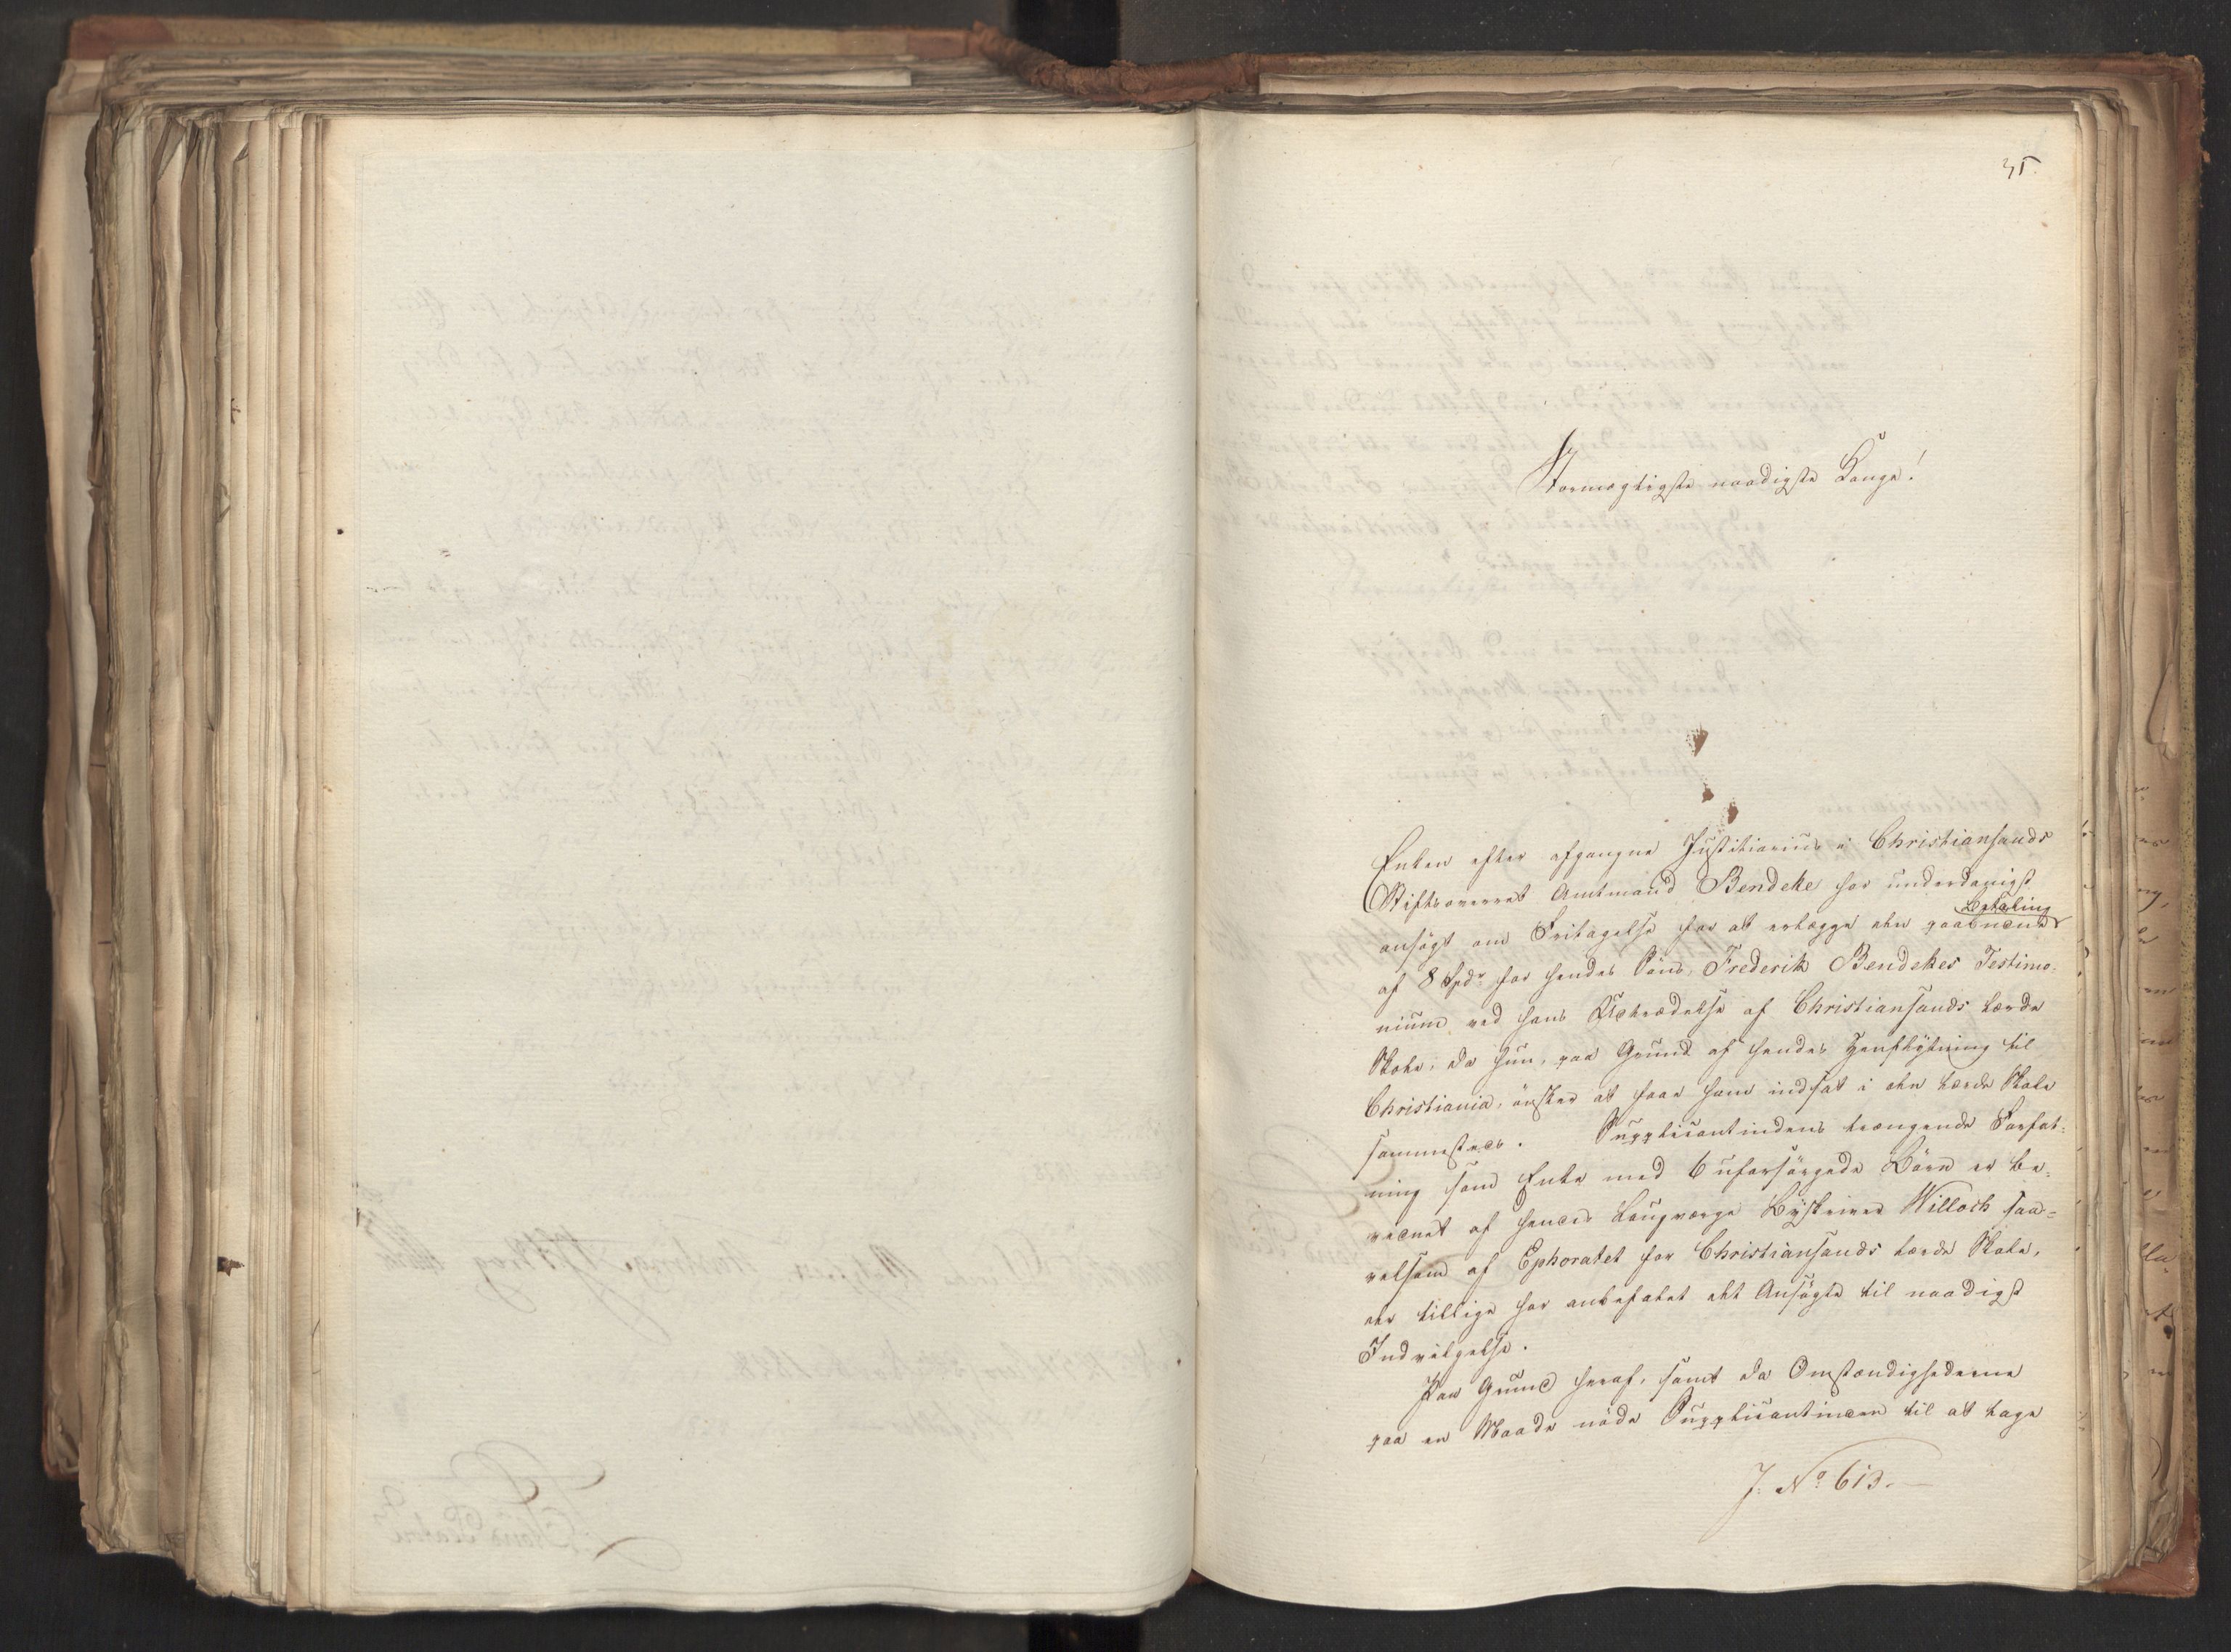 35.
Stormægtigste naadigste Konge!
Enken efter afgangne Justitiarius i Christiansands
Stiftsoverret Amtmand Bendeke har underdanigst
Betaling
ansögt om Fritagelse for at erlægge den paabudne
af 8 Spdr for hendes Söns, Frederik Bendekes Testimo-
nium ved hans Udtrædelse af Christiansands lærde
Skole, da hun, paa Grund af hendes Henflytning til
Christiania, önsker at faae ham indsat i den lærde Skole
sammesteds. Supplicantindens trængende Forfat-
ning som Enke med 6 uforsörgede Börn er be-
vidnet af hendes Laugværge Byskriver Willoch saa-
velsom af Ephoratet for Christiansands lærde Skole,
der tillige har anbefalet det Ansögte til naadigst
Indvilgelse.
Paa Grund heraf, samt da Omstændighederne
paa en Maade nöde Supplicantinden til at tage
J. No 613.